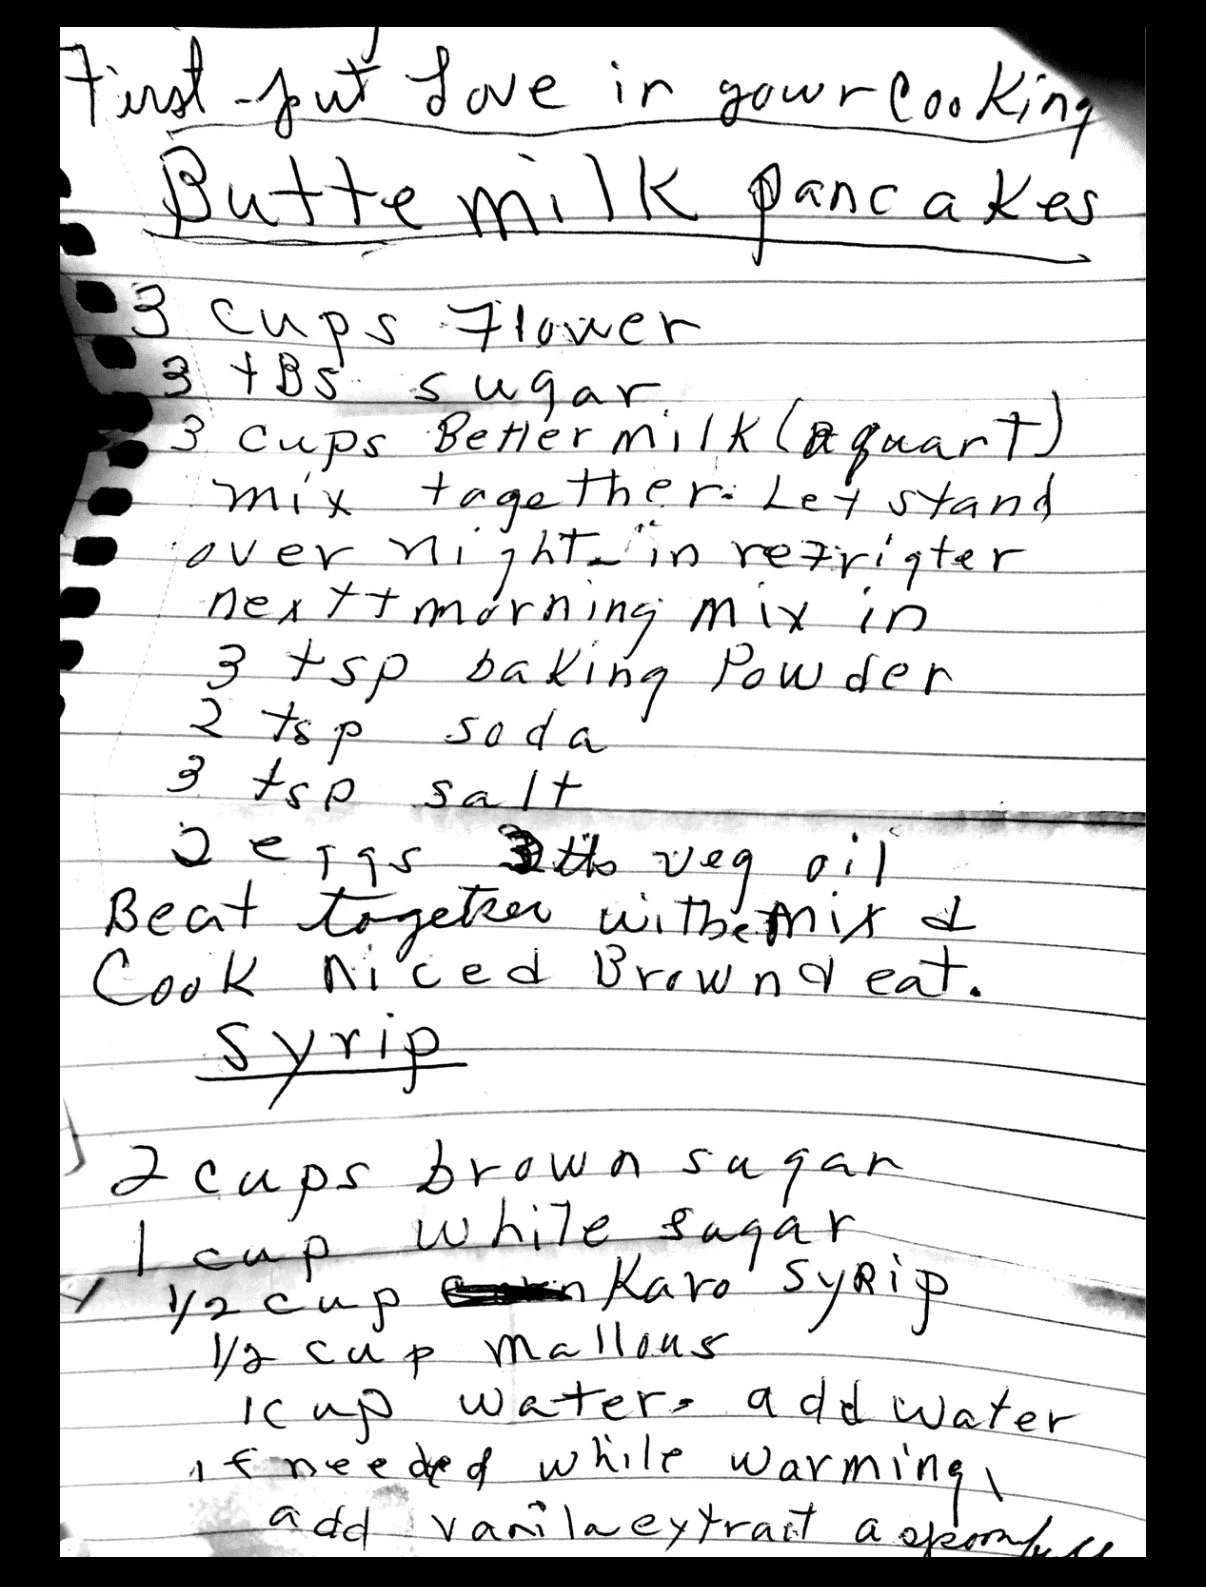 First put Love in your Cooking
Buttemilk pancakes
3 cups Flower
3 tBS sugar
3 cups Bettermilk (a quart)
mix tagether. Let stand
over night in refrigter
nextt morning mix in
3 tsp baking Powder
2 tsp soda
3 tsp salt
2 eggs 3 tbs veg oil
Beat together with mix &
Cook niced Brown & eat.
Syrip
2 cups brown sugar
1 cup while sugar
1/2 cup Karo SyRip
1/2 cup mallous
1 cup water. add water
if needed while warming,
add vanila extrait a spoonfull